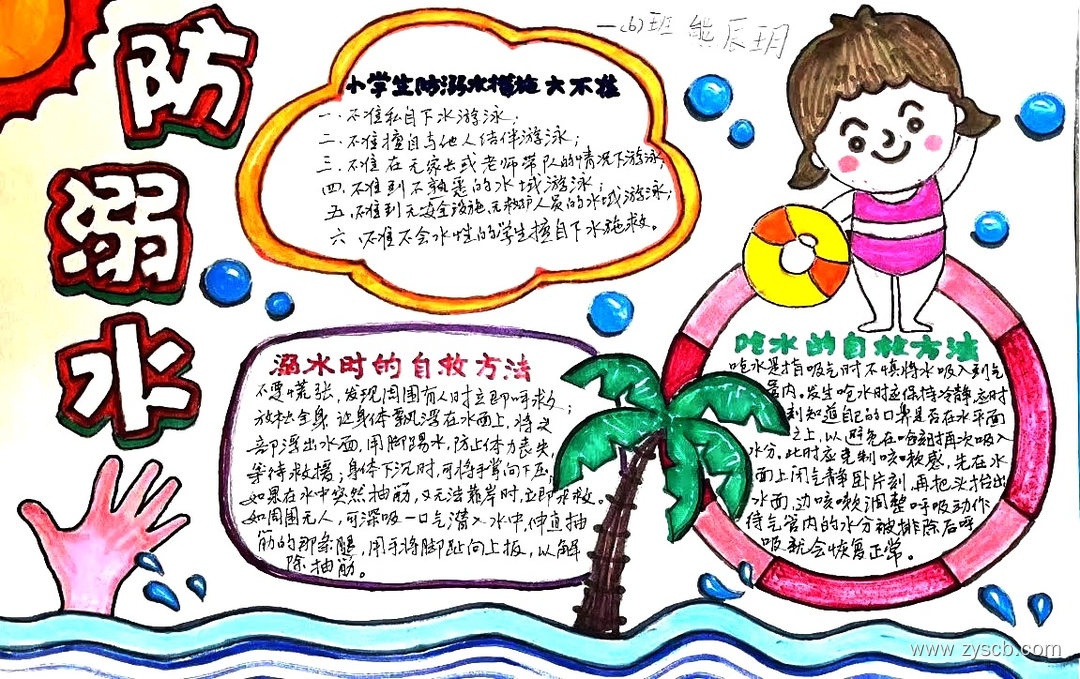 防
溺
水
一(6)班 熊辰玥
小学生防溺水措施六不准
一、不准私自下水游泳；
二、不准擅自与他人结伴游泳；
三、不准在无家长或老师带队的情况下游泳
四、不准到不熟悉的水域游泳；
五、不准到无安全设施、无救护人员的水域游泳；
六、不准不会水性的学生擅自下水施救。
溺水时的自救方法
不要慌张，发现周围有人时立即呼救；
放松全身，让身体飘浮在水面上，将头
部浮出水面，用脚踢水，防止体力丧失，
等待救援；身体下沉时，可将手掌向下压；
如果在水中突然抽筋，又无法靠岸时，立即求救。
如周围无人，可深吸一口气潜入水中，伸直抽
筋的那条腿，用手将脚趾向上扳，以解
除抽筋。
呛水的自救方法
呛水是指吸气时不慎将水吸入到气
管内。发生呛水时应保持冷静，及时
知道自己的口鼻是否在水平面
之上，以避免在咳嗽时再次吸入
水分。此时应克制咳嗽感，先在水
面上闭气静卧片刻，再把头抬出
水面，边咳嗽调整呼吸动作
待气管内的水分被排除后呼
吸就会恢复正常。
www.zyscb.com